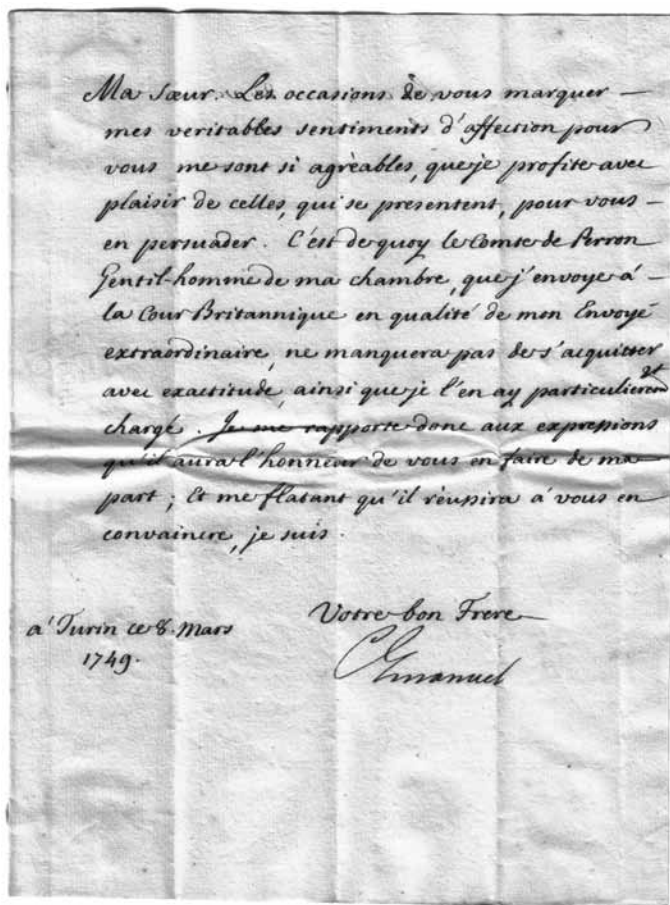 Ma Sœur. Les occasions de vous marquer
mes veritables sentiments d'affection pour
vous me sont si agrèables, que je profite avec
plaisir de celles, qui se presentent, pour vous
en persuader. C'est de quoy le Comte de Perron
Gentil-homme de ma chambre, que j'envoye á
la Cour Britannique en qualité de mon Envoyé
extraordinaire, ne manquera pas de s'acquitter
avec exactitude, ainsi que je l'en ay particulierem.t
chargé. Je me rapporte donc aux expressions
qu'il aura l'honneur de vous en faire de ma
part; Et me flatant qu'il rèussira à vous en
convaincre, je suis.
Votre bon Frere
a' Turin ce 8. Mars
1749.
CEmanuel